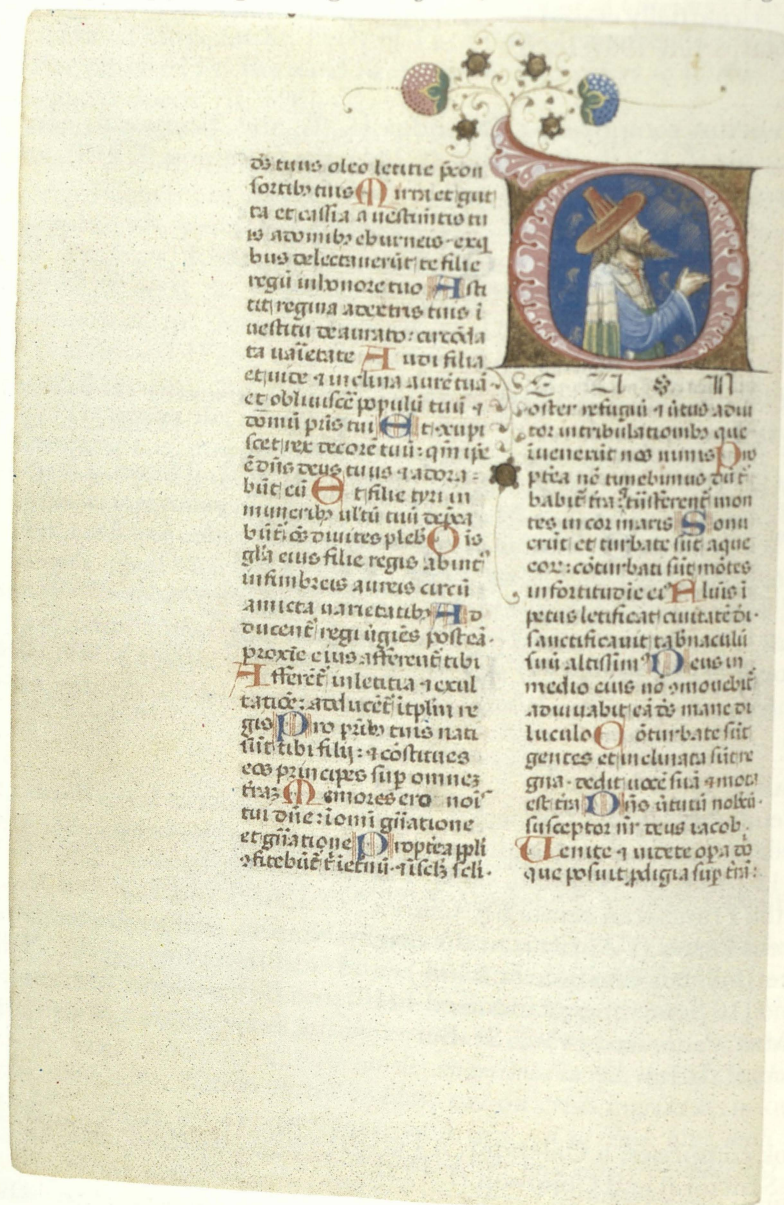 d̄s tuus oleo letitie p̄con
sortib; tuis Mirra et gut
ta et cassia a uestimētis tu
is a domib; eburneis · ex q
bus delectauerūt te filie
regū in honore tuo Asti
tit regina a dextris tuis ī
uestitu deaurato : circūda
ta uarietate Audi filia
et uide ⁊ inclina aurē tuā
et obliuiscē populū tuū ⁊
domū pr̄is tui Et ɔcupi
scet rex decorē tuū : qm̄ ip̄e
ē dn̄s deus tuus ⁊ adora
būt eū Et filie tyri in
munerib; ultū tuū depca
būt : oēs diuites pleb Ois
gl̄ia eius filie regis ab int
in fimbreis aureis circū
amicta uarietatib; Ad
ducent regi uirgīes post eā ·
proxīe eius afferent tibi
Afferēt in letitia ⁊ exul
tatiōe : adducēt ī tēplū re
gis Pro prīb; tuis nati
sūt tibi filij : ⁊ cōstitues
eos principes sup omnez
tr̄az Memores ero noīs
tui dn̄e : ī omī gn̄atione
et gn̄atione Propterea ppl̄i
ɔfitebūt t ī etnū · ⁊ ī sclȝ scl̄i ·
D E U S N
oster refugiū ⁊ ūtus adiu
tor in tribulationib; que
īuenerūt nos nimis Pro
pterea nō timebimus dū t
babit tr̄a : ⁊ trāsferent mon
tes in cor maris Sonu
erūt et turbate sūt aque
eor : cōturbati sūt mōtes
in fortitudīe ei Fluuis ī
petus letificat ciuitatē di ·
sanctificauit tabnaculū
suū altissim Deus in
medio eius nō ɔmouebit
adiuuabit eā ds mane di
luculo Cōturbate sūt
gentes et inclinata sūt re
gna · dedit uocē suā ⁊ mota
est tr̄a Dn̄s ūtutū nobcū ·
susceptor nr̄ deus iacob ·
Uenite ⁊ uidete opa dn̄
que posuit pdigia sup tr̄a :